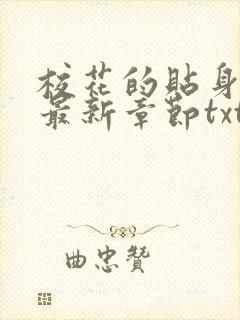 校花的貼身
最新章節txt
曲忠贊